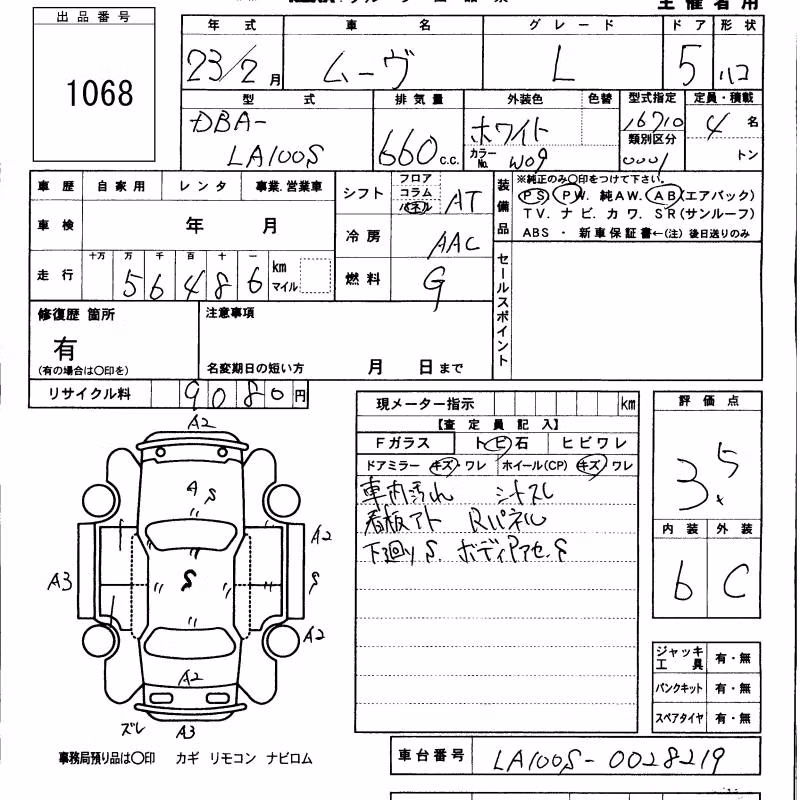 出品番号
1068
主催者用
年式 車名 グレード ドア 形状
23/2月 ムーヴ L 5 ハコ
型式 排気量 外装色 色替 型式指定 定員・積載
DBA-
LA100S 660c.c. ホワイト カラーNo. W09 16710 類別区分 0001 4名 トン
車歴 自家用 レンタ 事業.営業車
車検 年 月
走行 十万 万 千 百 十 一
56486 km マイル
シフト フロア コラム パネル AT
冷房 AAC
燃料 G
装備品
※純正のみ○印をつけて下さい。
PS PW. 純AW. AB(エアバック)
TV. ナビ. カワ. SR(サンルーフ)
ABS ・ 新車保証書←(注) 後日送りのみ
セールスポイント
修復歴 箇所
有
(有の場合は○印を)
注意事項
名変期日の短い方 月 日まで
リサイクル料 9080円
現メーター指示 km
【査定員記入】
Fガラス トビ石 ヒビワレ
ドアミラー キズ・ワレ ホイール(CP) キズ・ワレ
車内汚れ シートスレ
看板アト Rパネル
下廻りS. ボディPアセ.S
評価点
3.5
内装 外装
b C
A2
A S
A2
A3 S S
A2
A2
ズレ A3
ジャッキ工具 有・無
パンクキット 有・無
スペアタイヤ 有・無
事務局預り品は○印 カギ リモコン ナビロム
車台番号 LA100S-0028219